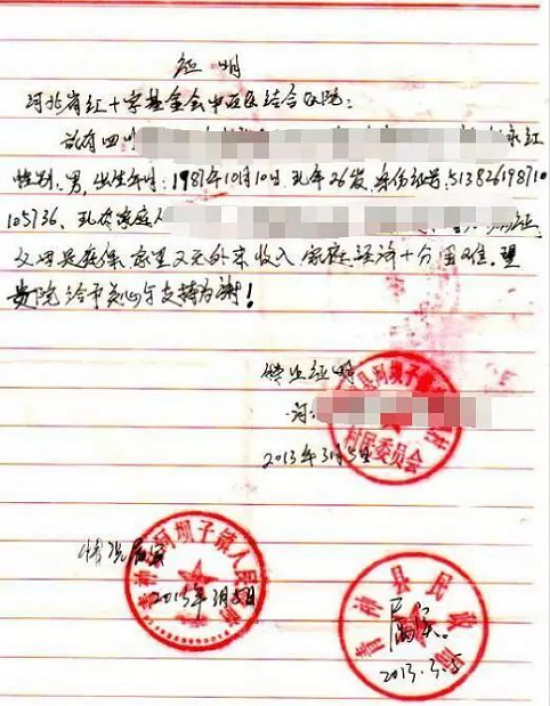 证明
河北省红十字基金会中西医结合医院:
兹有四川 永红
性别,男,出生年月:1987年10月10日,现年26岁,身份证号,513826198710
105736、现在家庭人
父母是务农,家里又无外来收入,家庭经济十分困难,望
贵院给予关心与支持为谢!
特此证明
河
村民委员会
2013年3月5号
情况属实
青神县河坝子镇人民政府
2013年3月5日
青神县民政局
属实。
2013.3.5